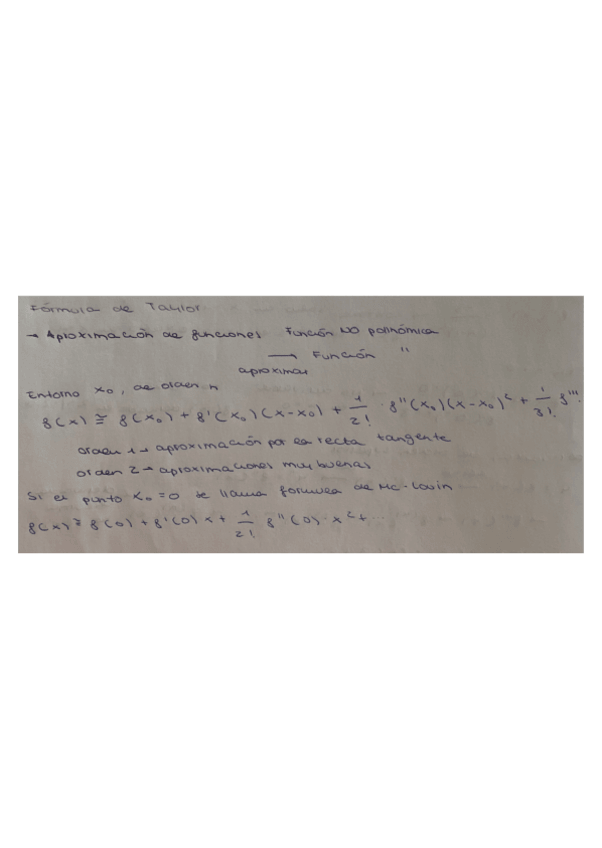 Fórmula de Taylor
→ Aproximación de funciones Función NO polinómica
→ Función "
aproximar
Entorno x₀, de orden n
f(x) ≅ f(x₀) + f'(x₀)(x-x₀) + 1/2! · f''(x₀)(x-x₀)² + 1/3! f'''.
orden 1 → aproximación por la recta tangente
orden 2 → aproximaciones muy buenas
Si el punto x₀=0 se llama formula de Mc-Lovin
f(x) ≅ f(0) + f'(0) x + 1/2! f''(0) · x² + ...